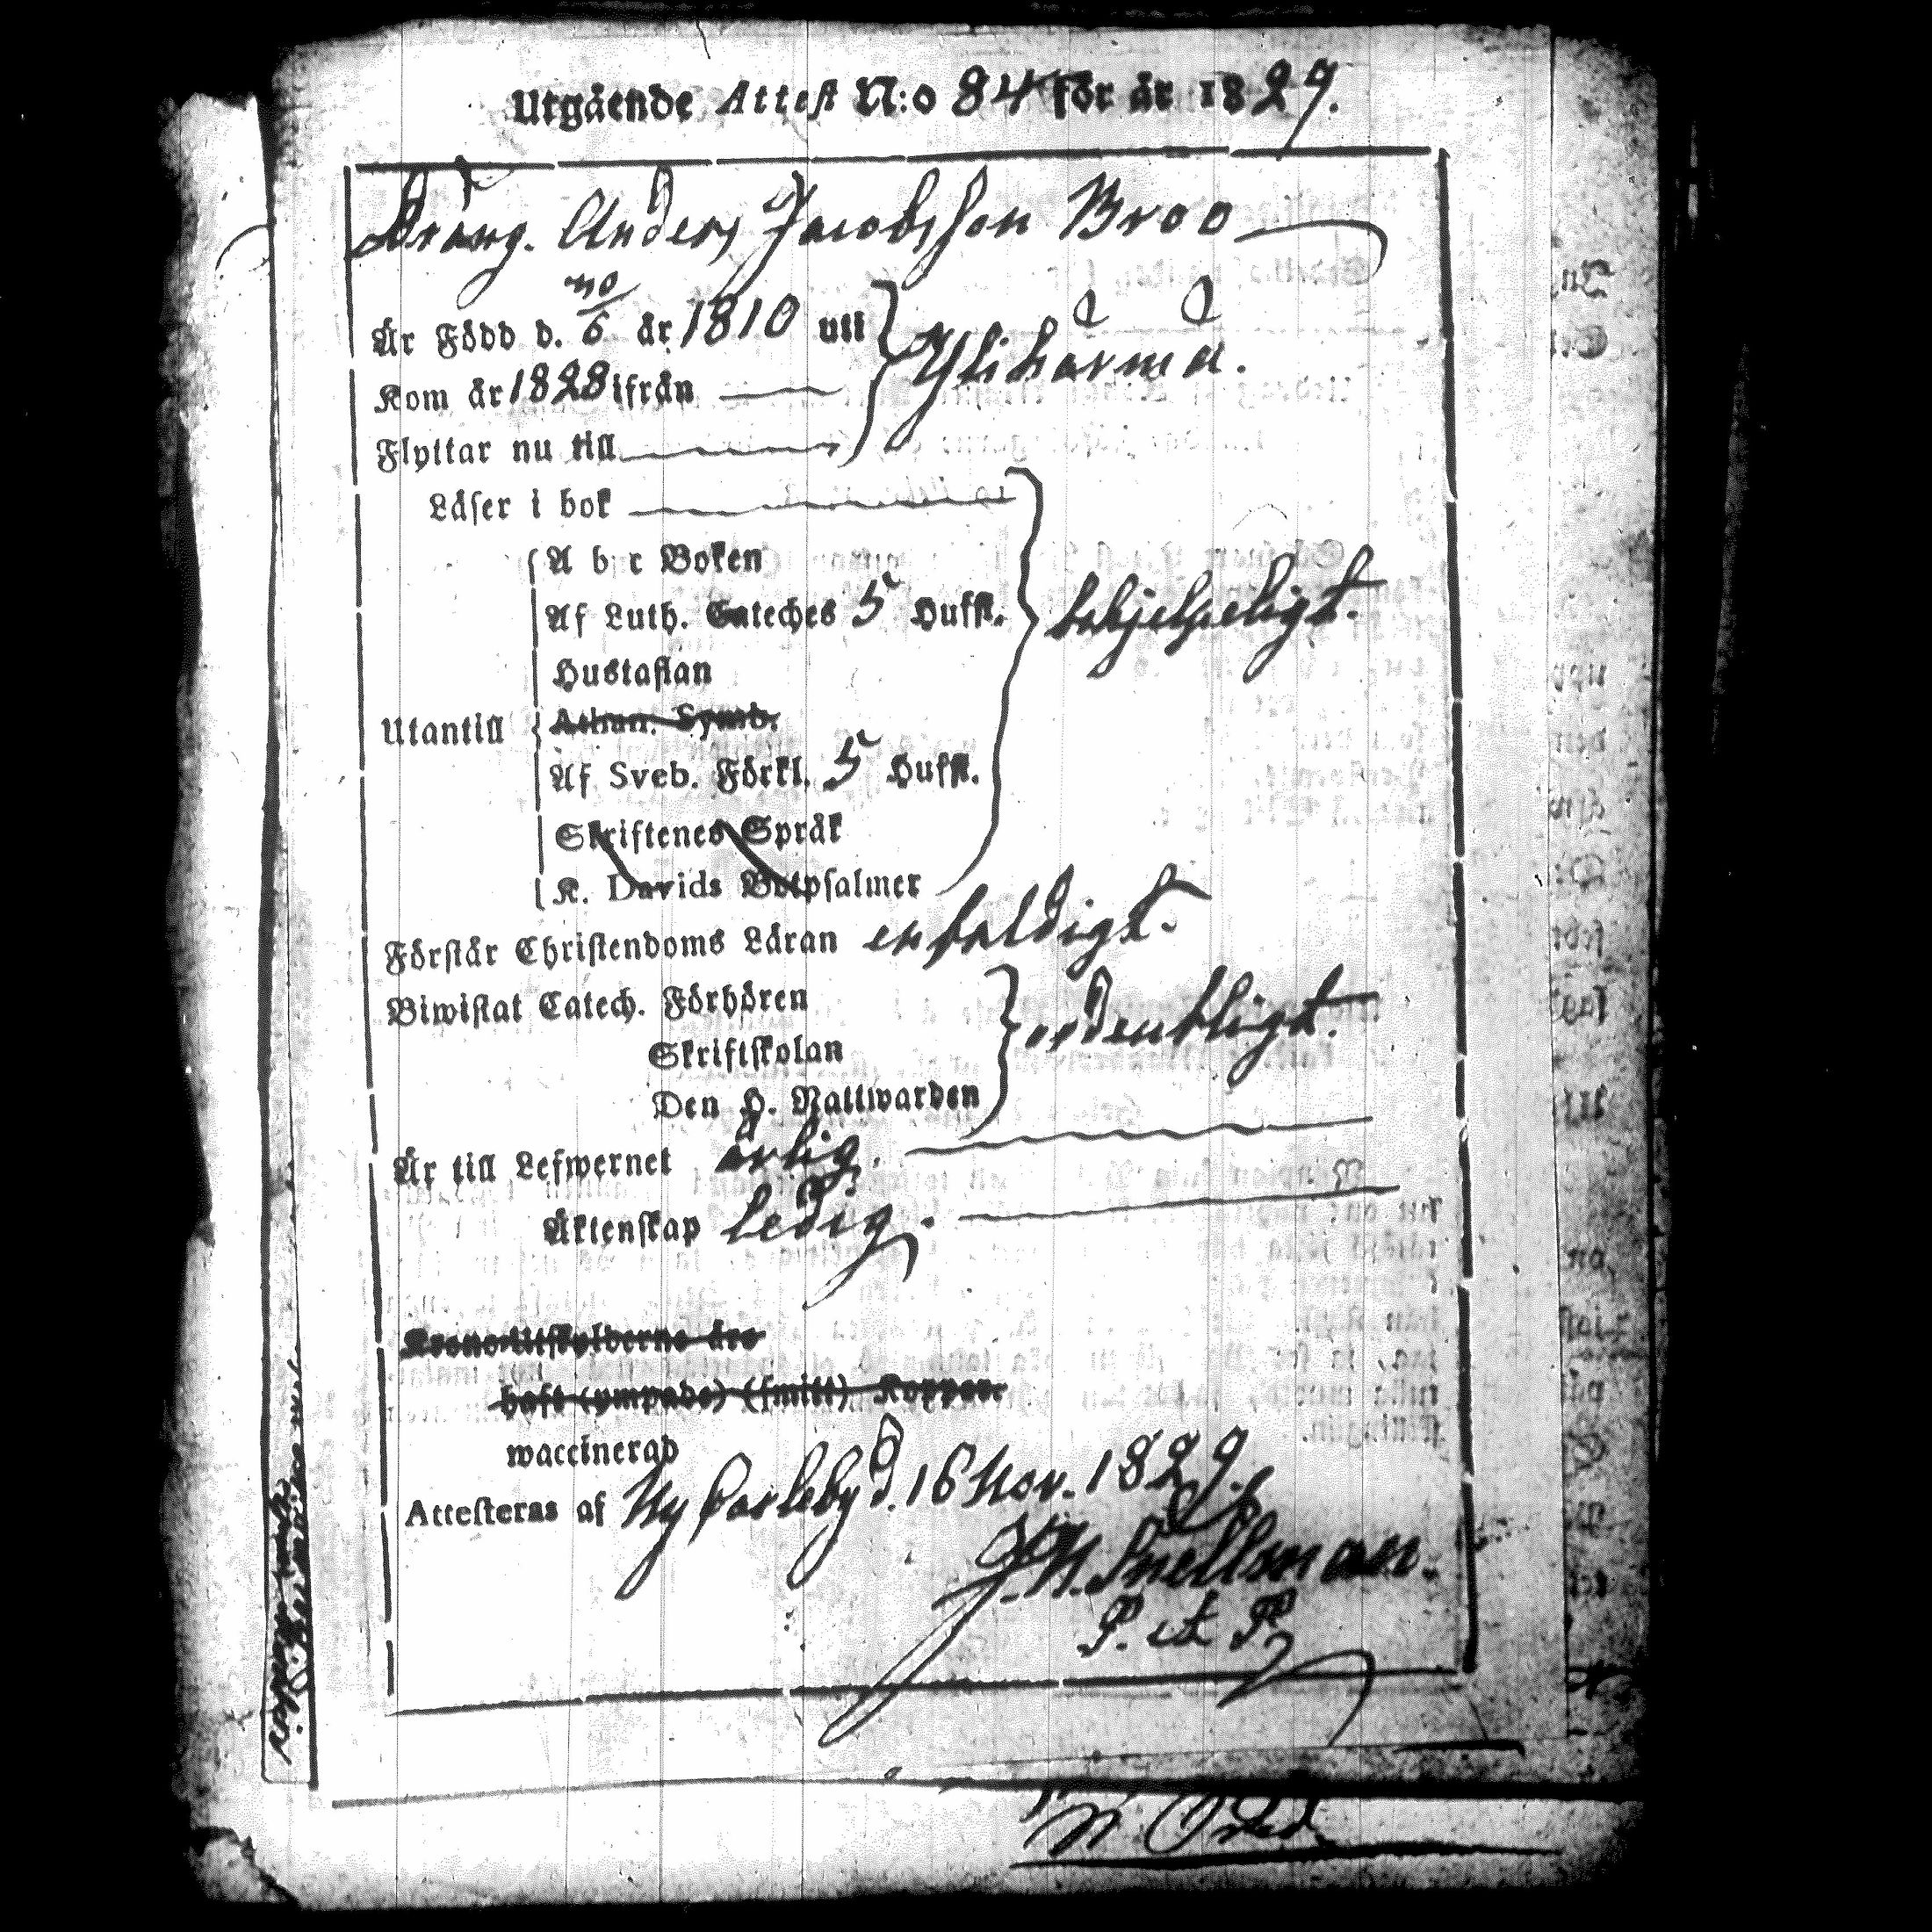 Utgående Attest N:o 84 för år 1829.
Dräng. Anders Jacobsson Broo
Är Född d. 10/6 år 1810 uti
Kom år 1828 ifrån
Flyttar nu till
Ylihärmä.
Läser i bok
A b c Boken
Af Luth. Cateches 5 Hufst.
behjelpeligt.
Hustaflan
Utantill
Athan. Symb.
Af Sveb. Förkl. 5 Hufst.
Skriftenes Språk
K. Davids Botpsalmer
Förstår Christendoms Läran enfaldigt.
Biwistat Catech. Förhören
ordentligt.
Skriftskolan
Den H. Nattwarden
Är till Lefwernet ärlig.
Äktenskap ledig.
Krono-Utskylderne äro
haft (ympade) (smitt) Koppor.
waccinerad
Attesteras af Ny Carleby d. 16 Nov. 1829.
J. H. Snellman.
P. et P.